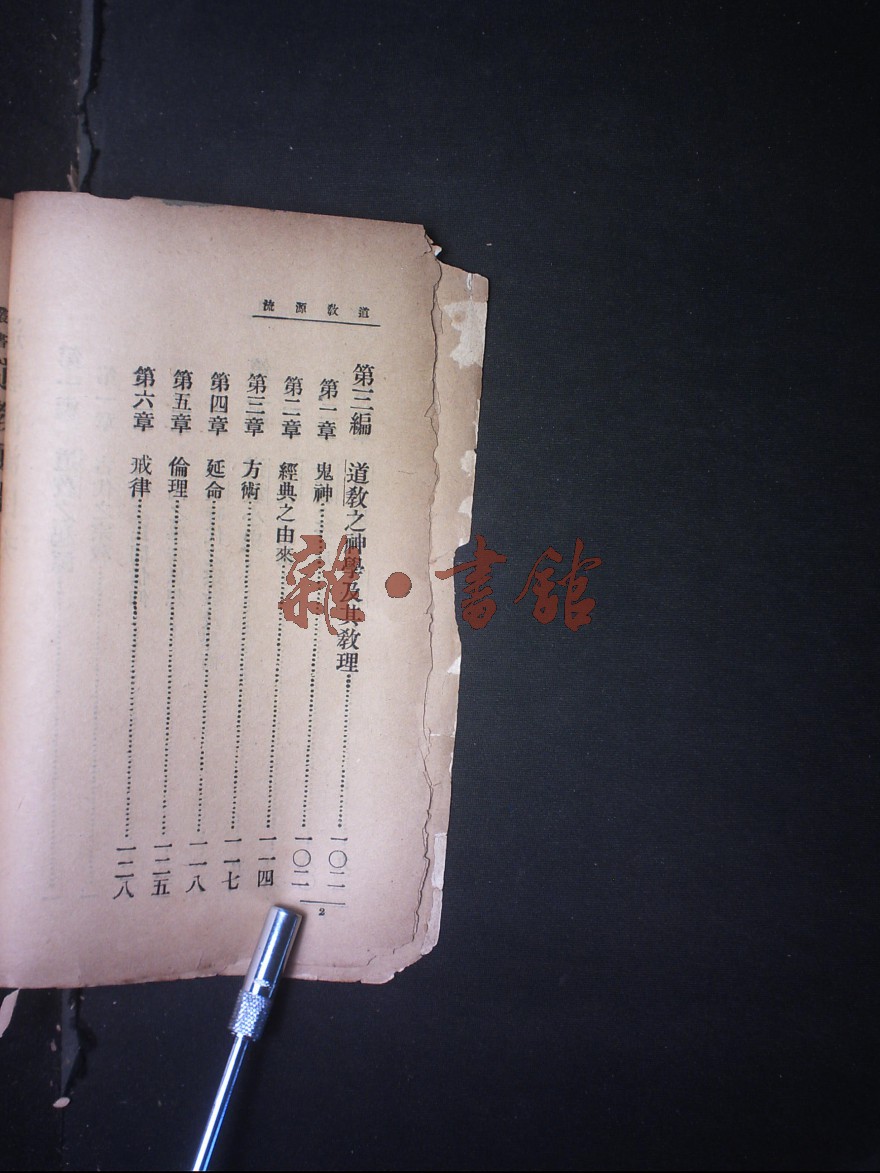 道教源流
第三編　道教之神學及其教理……一〇二
第一章　鬼神……一〇二
第二章　經典之由來……一一四
第三章　方術……一一七
第四章　延命……一一八
第五章　倫理……一二五
第六章　戒律……一二八
2
雜·書館